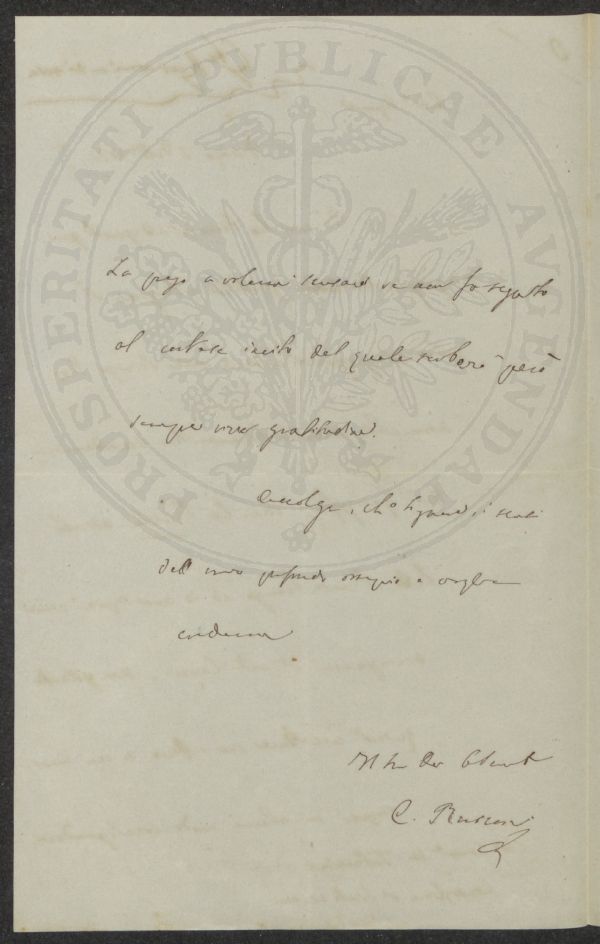 PROSPERITATI PVBLICAE AVGENDAE
La prego a volermi scusare se non fo seguito
al cortese invito del quale serberò però
sempre viva gratitudine.
Accolga, ch.º Signore, i sensi
del mio profondo ossequio e voglia
credermi
Il Suo Dev
C. Rusconi